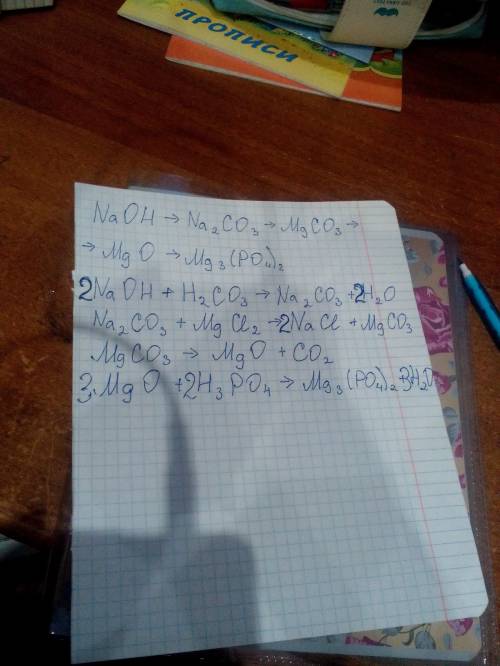 ПРОПИСИ
NaOH → Na₂CO₃ → MgCO₃ →
→ MgO → Mg₃(PO₄)₂
2NaOH + H₂CO₃ → Na₂CO₃ + 2H₂O
Na₂CO₃ + MgCl₂ → 2NaCl + MgCO₃
MgCO₃ → MgO + CO₂
3MgO + 2H₃PO₄ → Mg₃(PO₄)₂ + 3H₂O